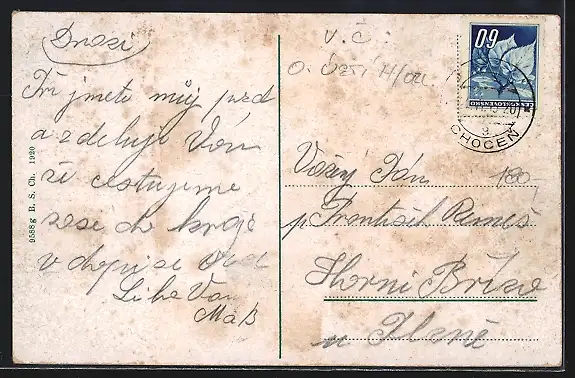 Drazí
Při jmete můj pozd
a zdeluji Vám
že cestujeme
zase do kraje
v dopise
Líbe Vam
Mař
9588g B. S. Ch. 1920
V. Č.
o. Ústí n/Orl.
60
ČESKOSLOVENSKO
CHOCEŇ
Vážený Pán
180-
p František Remeš
Horni Bříze
u Plzně